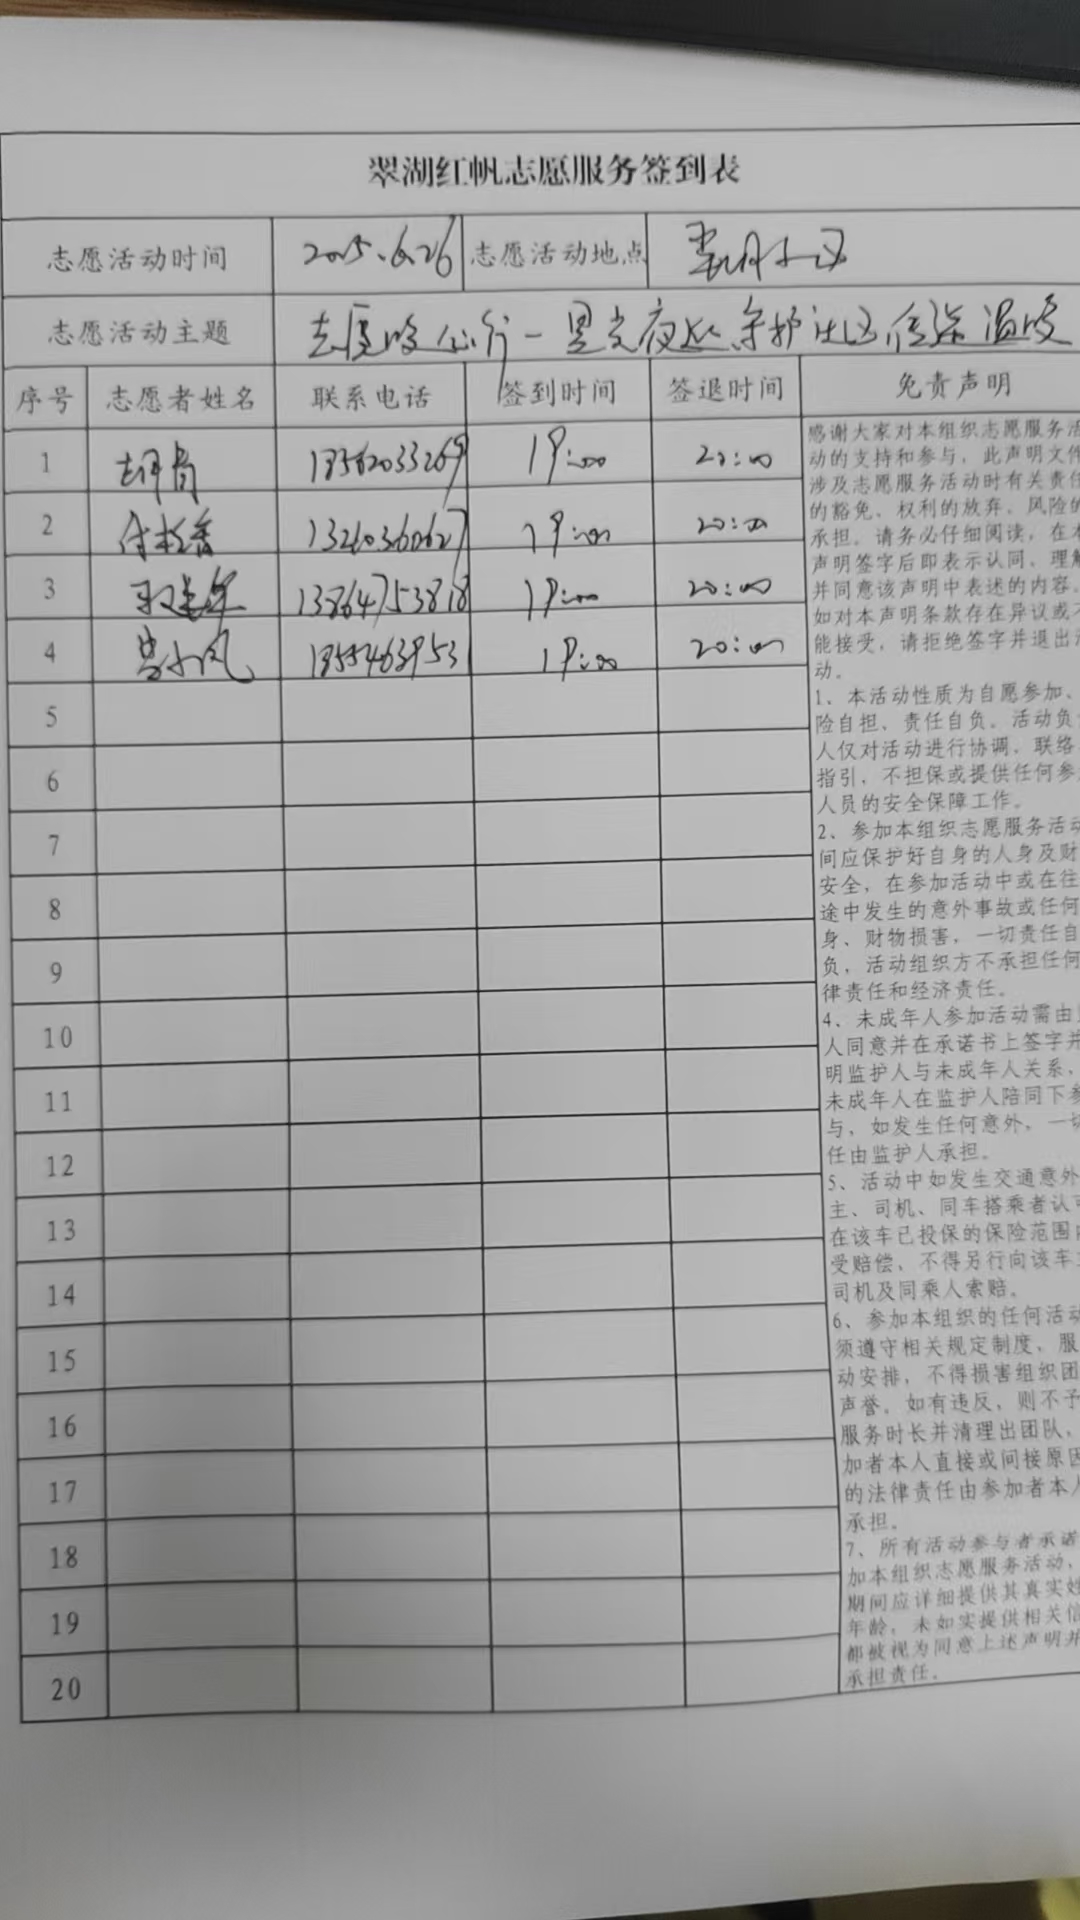 翠湖红帆志愿服务签到表
志愿活动时间 2025.6.26 志愿活动地点
志愿活动主题 守护社区传递温暖
序号 志愿者姓名 联系电话 签到时间 签退时间 免责声明
1 19:00 20:00
2 19:00 20:00
3 13864753818 19:00 20:00
4 19:00 20:00
5
6
7
8
9
10
11
12
13
14
15
16
17
18
19
20
感谢大家对本组织志愿服务活
动的支持和参与，此声明文件
涉及志愿服务活动时有关责任
的豁免、权利的放弃、风险的
承担。请务必仔细阅读，在本
声明签字后即表示认同、理解
并同意该声明中表述的内容。
如对本声明条款存在异议或不
能接受，请拒绝签字并退出活
动。
1、本活动性质为自愿参加、
险自担、责任自负。活动负
人仅对活动进行协调、联络
指引，不担保或提供任何参
人员的安全保障工作。
2、参加本组织志愿服务活动
间应保护好自身的人身及财
安全，在参加活动中或在往
途中发生的意外事故或任何
身、财物损害，一切责任自
负，活动组织方不承担任何
律责任和经济责任。
4、未成年人参加活动需由
人同意并在承诺书上签字并
明监护人与未成年人关系，
未成年人在监护人陪同下参
与，如发生任何意外，一切
任由监护人承担。
5、活动中如发生交通意外
主、司机、同车搭乘者认可
在该车已投保的保险范围内
受赔偿、不得另行向该车
司机及同乘人索赔。
6、参加本组织的任何活动
须遵守相关规定制度，服
动安排，不得损害组织团
声誉。如有违反，则不予
服务时长并清理出团队，
加者本人直接或间接原因
的法律责任由参加者本人
承担。
7、所有活动参与者承诺
加本组织志愿服务活动，
期间应详细提供其真实姓
年龄，未如实提供相关信
都被视为同意上述声明并
承担责任。